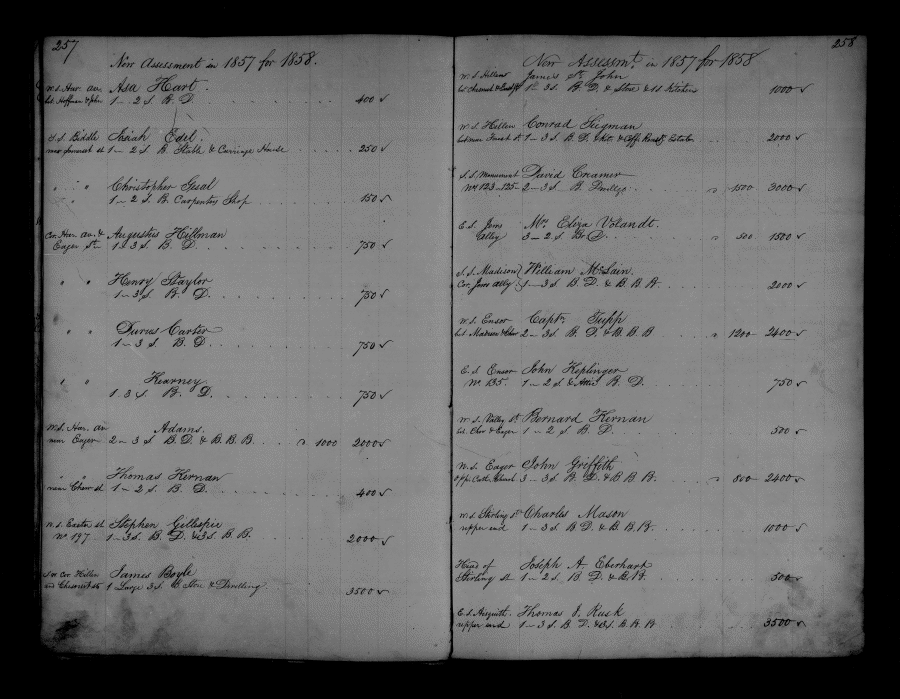 257
New Assessment in 1857 for 1858.
W. S. Har. av. Asa Hart.
bet. Hoffman & John 1 — 2 S. B. D. 400 ✓
S. S. Biddle Josiah Edel.
near Somerset st 1 — 2 S. B Stable & Carriage House 250 ✓
" " " Christopher
" 1 — 2 S. B. Carpenters Shop 150 ✓
Cor. Har. av. & Augustus Hillman
Eager St. 1 3 S. B. D. 750 ✓
" " Henry Staylor
1 — 3 S. B. D. 750 ✓
" " Carter
1 — 3 S. B. D 750 ✓
" " Kearney
1 3 S. B. D. 750 ✓
W. S. Har. av Adams.
near Eager 2 — 3 S B. D. & B. B. B. 1000 2000 ✓
" " Thomas Kernan
near Chew st 1 — 2 S. B. D. 400 ✓
N. S. Easter st Stephen Gillespie
No. 197 1 — 3 S. B. D. & 3 S. B. B. 2000 ✓
S. W. Cor. Hillen James Boyle
and Chesnut st 1 Large 3 S. B Store & Dwelling 3500 ✓
258
New Assessmt. in 1857 for 1858
W. S. Hillen James St. John
1 — 3 S. B. D. & Store & 1 S Kitchen 1000 ✓
W. S. Hillen Conrad Siegman
near Forest st 1 — 3 S. B D. 2000 ✓
S. S. Monument David Creamer
No. 123–125 2 — 3 S. B. Dwellgs. 1500 3000 ✓
E. S. Jews Mrs. Eliza Volandt.
Alley 3 — 2 S. Br D. 500 1500 ✓
S. S. Madison William McLain.
Cor. Jews alley 1 — 3 S. B D. & B. B. B. 2000 ✓
W. S. Ensor Captn. Tupp
bet. Madison & Chew 2 — 3 S B. D. & B. B. B 1200 2400 ✓
E. S. Ensor John Keplinger
No. 135. 1 — 2 S & Attic B. D. 750 ✓
W. S. Valley St. Bernard Kernan
bet. Chew & Eager 1 — 2 S B. D. 500 ✓
N. S. Eager John Griffith
Opp. Cath. 3 — 3 S. B. D. & B B. B. 800 2400 ✓
W. S. Stirling St Charles Mason
upper end 1 — 3 S. B D. & B B. B. 1000 ✓
Head of Joseph A. Eberhart
Stirling st 1 — 2 S. B. D. & B. B. 500 ✓
E. S. Aisquith. Thomas J. Rusk
upper end 1 — 3 S. B. D. & 3 S. B. B. B 3500 ✓